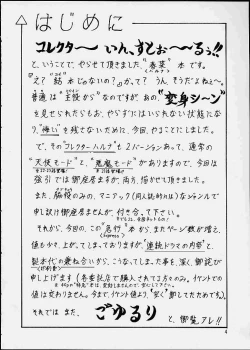 はじめに
コレクターー いん、すとぉーーるぅ!!
と、いうことで、やらせて頂きました "春菜" 本 です。
え? 本じゃないの?」かって? うん、そうだよねぇ〜。
普通は "主役から" なのですが、あの、"変身シーン"
を見せられたらもお、やらずにはいられない状態になり
"悔い" を残さないために、今回、やることにしました。
で、その "コレクター・ハルナ" も 2バージョンあって、通常の
"天使モード" と、"悪魔モード" がありますので、今回は
強引では御座居ますが、両方、描かせて頂きました。
また、脇役のみの、マニアック(同人誌的には)なジャンルで
申し訳け御座居ませんが、付き合って下さい。
それから、今回の、この "急行" 本から、またページ数が増え、
値も少々、上がってしまっておりますが、"連続ドラマの内容" と、
製本代の兼ね合いから、こうなってしまった事を、深く、御詫び
申し上げます
値は変わりません。今まで、イベント値より、"安く" 卸してたためです。
それでは また、 ごゆるり と、御覧アレ!!
4